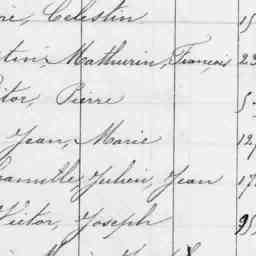 Célestin 15
Mathurin, François 23
Pierre 5
Jean, Marie 127
Julien, Jean 17
Victor, Joseph 95